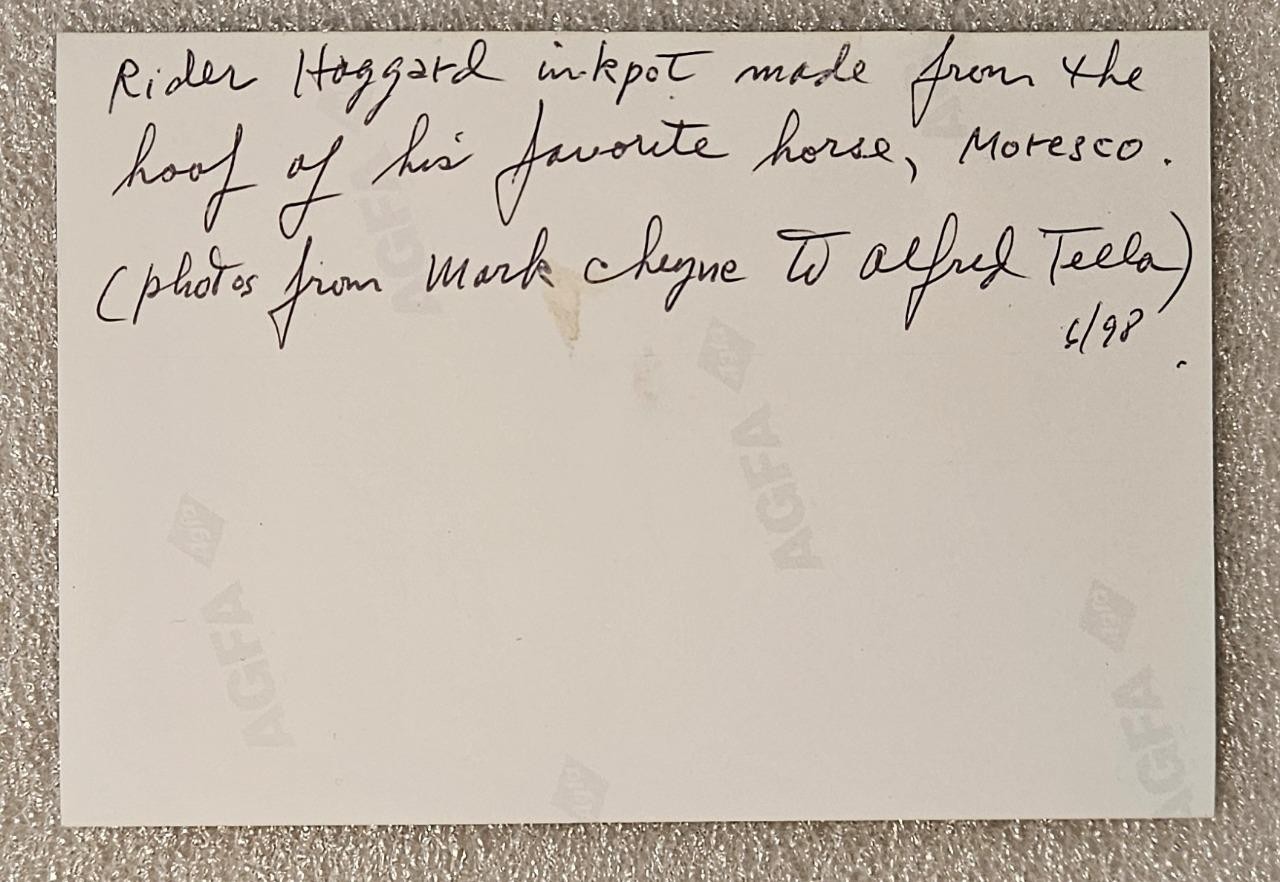 Rider Haggard inkpot made from the
hoof of his favorite horse, Moresco.
(photos from Mark Cheyne to Alfred Tella)
6/98
AGFA
AGFA
AGFA
AGFA